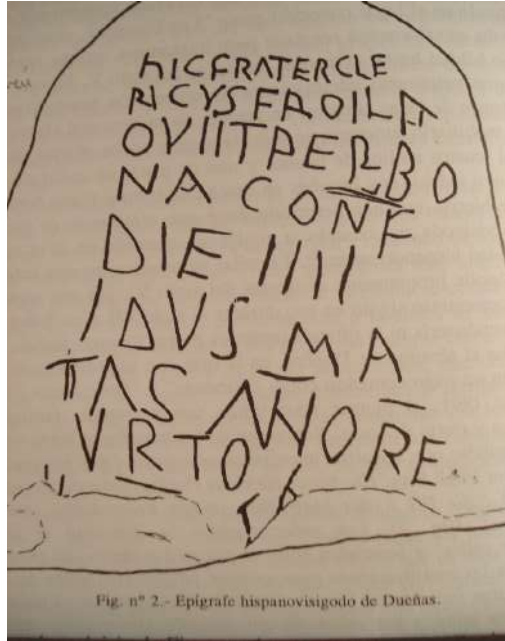 hICFRATERCLE
RICVSFROILA
OVIITPERBO
NA CONF
DIE IIII
IDVS MA
TAS ANORE
VRTO
TA
Fig. nº 2.- Epígrafe hispanovisigodo de Dueñas.